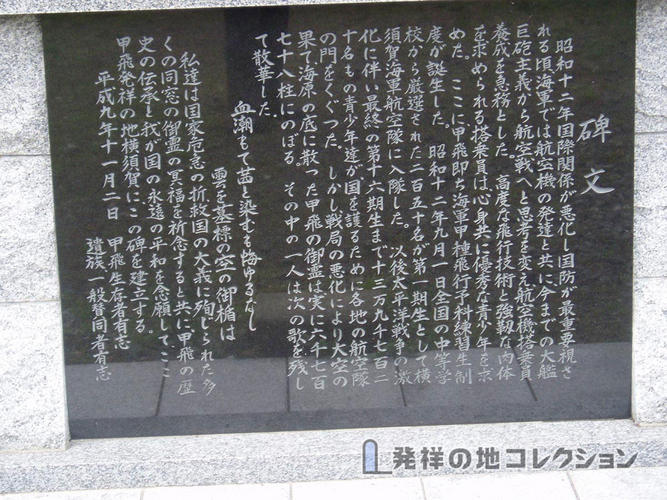 碑文
昭和十二年国際関係が悪化し国防が最重要視さ
れる頃海軍では航空機の発達と共に今までの大艦
巨砲主義から航空戦へと思考を変え航空機搭乗員
養成を急務とした。高度な飛行技術と強靱な肉体
を求められる搭乗員は心身共に優秀な青少年を求
めた。ここに甲飛即ち海軍甲種飛行予科練習生制
度が誕生した。昭和十二年九月一日全国の中等学
校から厳選された二百五十名が第一期生として横
須賀海軍航空隊に入隊した。以後太平洋戦争の激
化に伴い最終の第十六期生まで十三万九千七百二
十名もの青少年達が国を護るために各地の航空隊
の門をくぐつた。しかし戦局の悪化により大空の
果て海原の底に散った甲飛の御霊は実に六千七百
七十八柱にのぼる。その中の一人は次の歌を残し
て散華した。
血潮もて茜と染むも悔ゆるなし
雲を墓標の空の御楯は
私達は国家危急の折救国の大義に殉じられた多
くの同窓の御霊の冥福を祈念すると共に甲飛の歴
史の伝承と我が国の永遠の平和を念願してここ
甲飛発祥の地横須賀にこの碑を建立する。
平成九年十一月二日
甲飛生存者有志
遺族一般賛同者有志
発祥の地コレクション